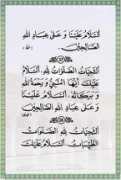 اَلسَّلَامُ عَلَيْنَا وَ عَلٰى عِبَادِ اللّٰهِ
الصَّالِحِيْنَ
اَلتَّحِيَّاتُ الصَّلَوَاتُ لِلّٰهِ اَلسَّلَامُ
عَلَيْكَ اَيُّهَا النَّبِيُّ وَ رَحْمَةُ اللّٰهِ
وَ بَرَكَاتُهُ اَلسَّلَامُ عَلَيْنَا
وَ عَلٰى عِبَادِ اللّٰهِ الصَّالِحِيْنَ
اَلتَّحِيَّاتُ لِلّٰهِ الصَّلَوَاتُ
الطَّيِّبَاتُ اَلسَّلَامُ عَلَيْكَ